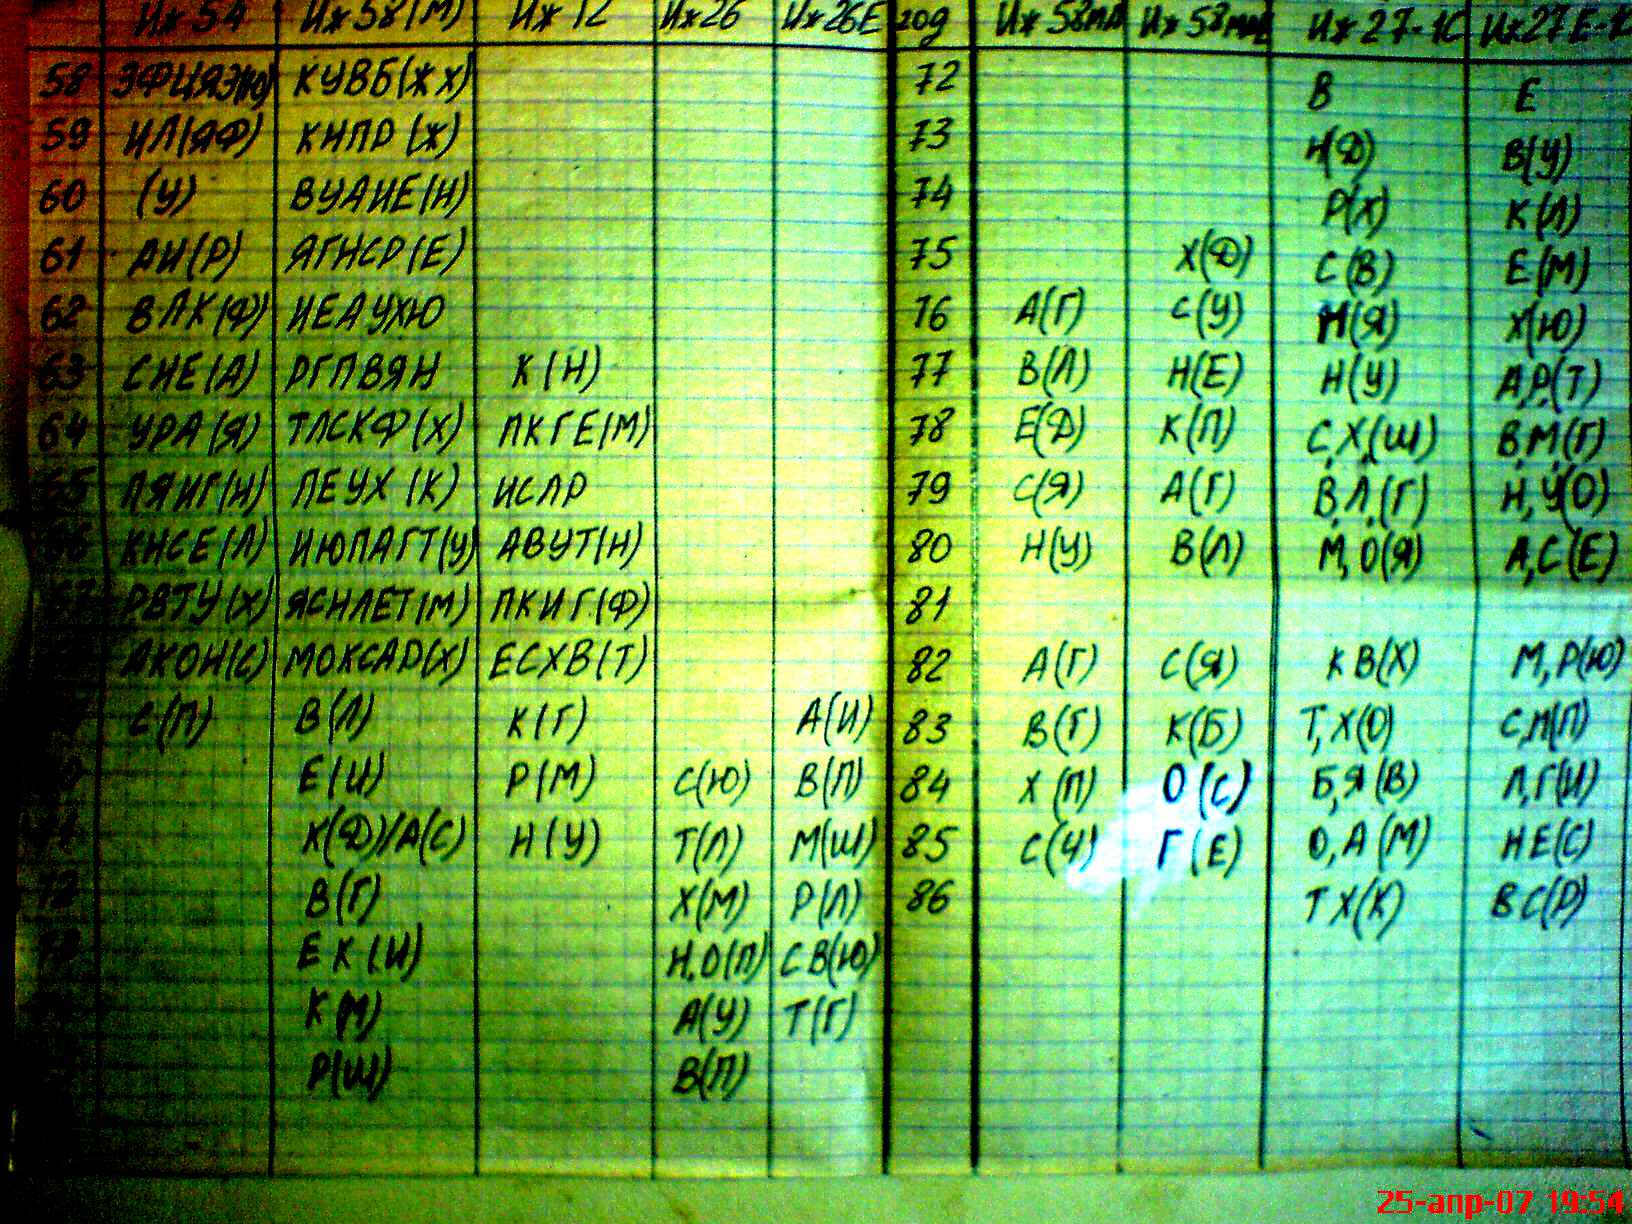 Иж 54 Иж 58(М) Иж 12 Иж 26 Иж 26Е год Иж 58МА Иж 58МАЕ Иж 27-1С Иж 27Е-1С
58 ЭФЦЯЭ(Ю) КУВБ(ЖХ) 72 В Е
59 ИЛ(ЯФ) КНПР(Ж) 73 Н(Д) В(У)
60 (У) ВУАИЕ(Н) 74 Р(Х) К(Л)
61 АИ(Р) ЯГНСР(Е) 75 Х(Д) С(В) Е(М)
62 ВЛК(Ф) ИЕАУХЮ 76 А(Г) С(У) М(Я) Х(Ю)
63 СНЕ(А) РГПВЯН К(Н) 77 В(Л) Н(Е) Н(У) А,Р,(Т)
64 УРА(Я) ТЛСКФ(Х) ПКГЕ(М) 78 Е(Д) К(П) С,Х,(Ш) В,М,(Г)
65 ПЯИГ(Н) ЛЕУХ(К) ИСЛР 79 С(Я) А(Г) В,Л,(Г) Н,У(О)
66 КНСЕ(Л) ИЮПАГТ(У) АВУТ(Н) 80 Н(У) В(Л) М,О(Я) А,С(Е)
67 РВТУ(Х) ЯСНЛЕТ(М) ПКИГ(Ф) 81
ЛКОН(С) МОКСАР(Х) ЕСХВ(Т) 82 А(Г) С(Я) КВ(Х) М,Р(Ю)
С(П) В(Л) К(Г) А(И) 83 В(Г) К(Б) Т,Х(О) С,Л(П)
Е(И) Р(М) С(Ю) В(П) 84 Х(П) О(С) Б,Я(В) Л,Г(И)
К(Д)/А(С) Н(У) Т(Л) М(Ш) 85 С(Ч) Г(Е) О,А(М) НЕ(С)
72 В(Г) Х(М) Р(Л) 86 ТХ(К) ВС(Р)
73 ЕК(И) Н,О(П) СВ(Ю)
К(М) А(У) Т(Г)
Р(Ш) В(П)
25-апр-07 19:54